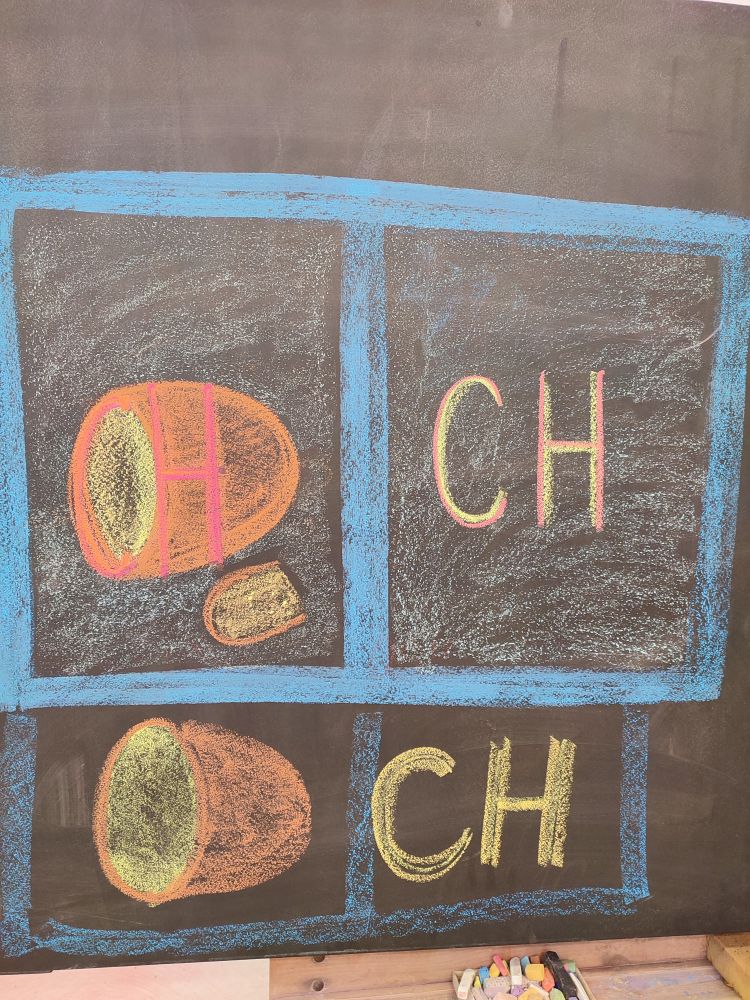 CH CH
CH